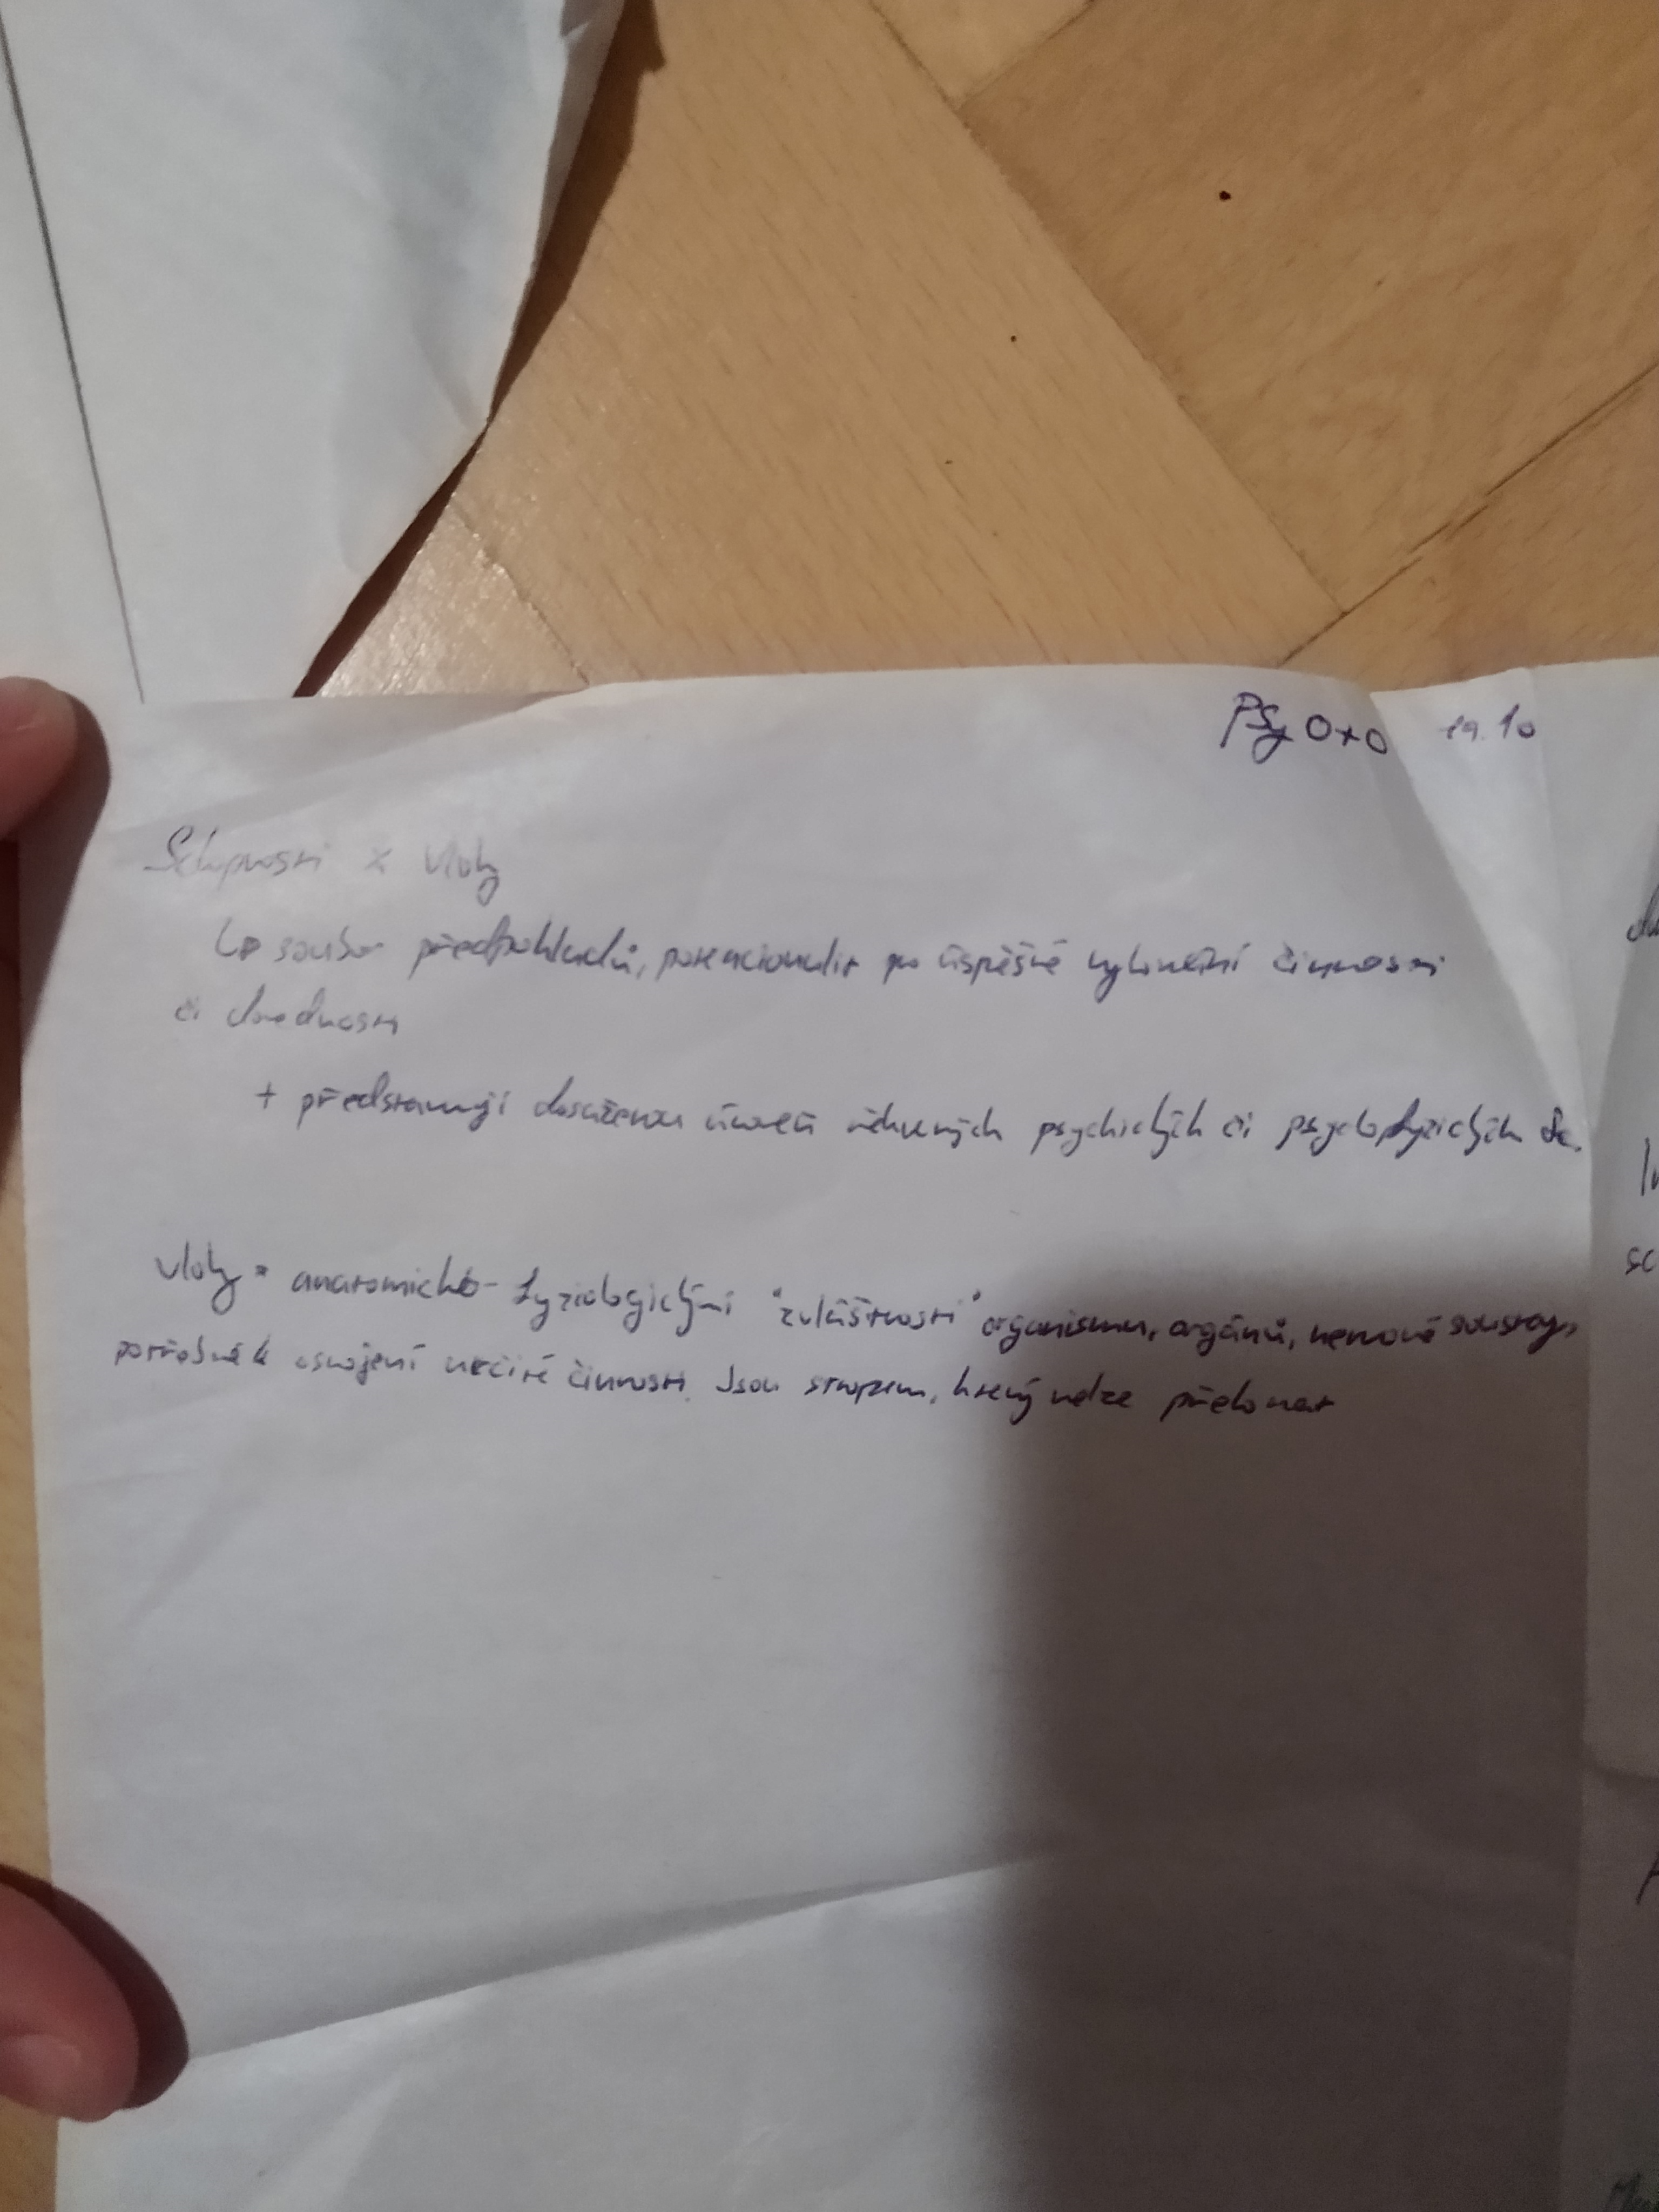 PSy OxO 19.10
Schopnosti x vlohy
↳ soubor předpokladů, potencionalit po úspěšné vykonání činnosti
či dovednosti
+ představují dosaženou úroveň některých psychických či psychofyzických
vlohy = anatomicko-fyziologickými "zvláštnosti" organismu, orgánů, nervové soustavy,
potřebné k osvojení určité činnosti. Jsou stropem, který nelze překonat